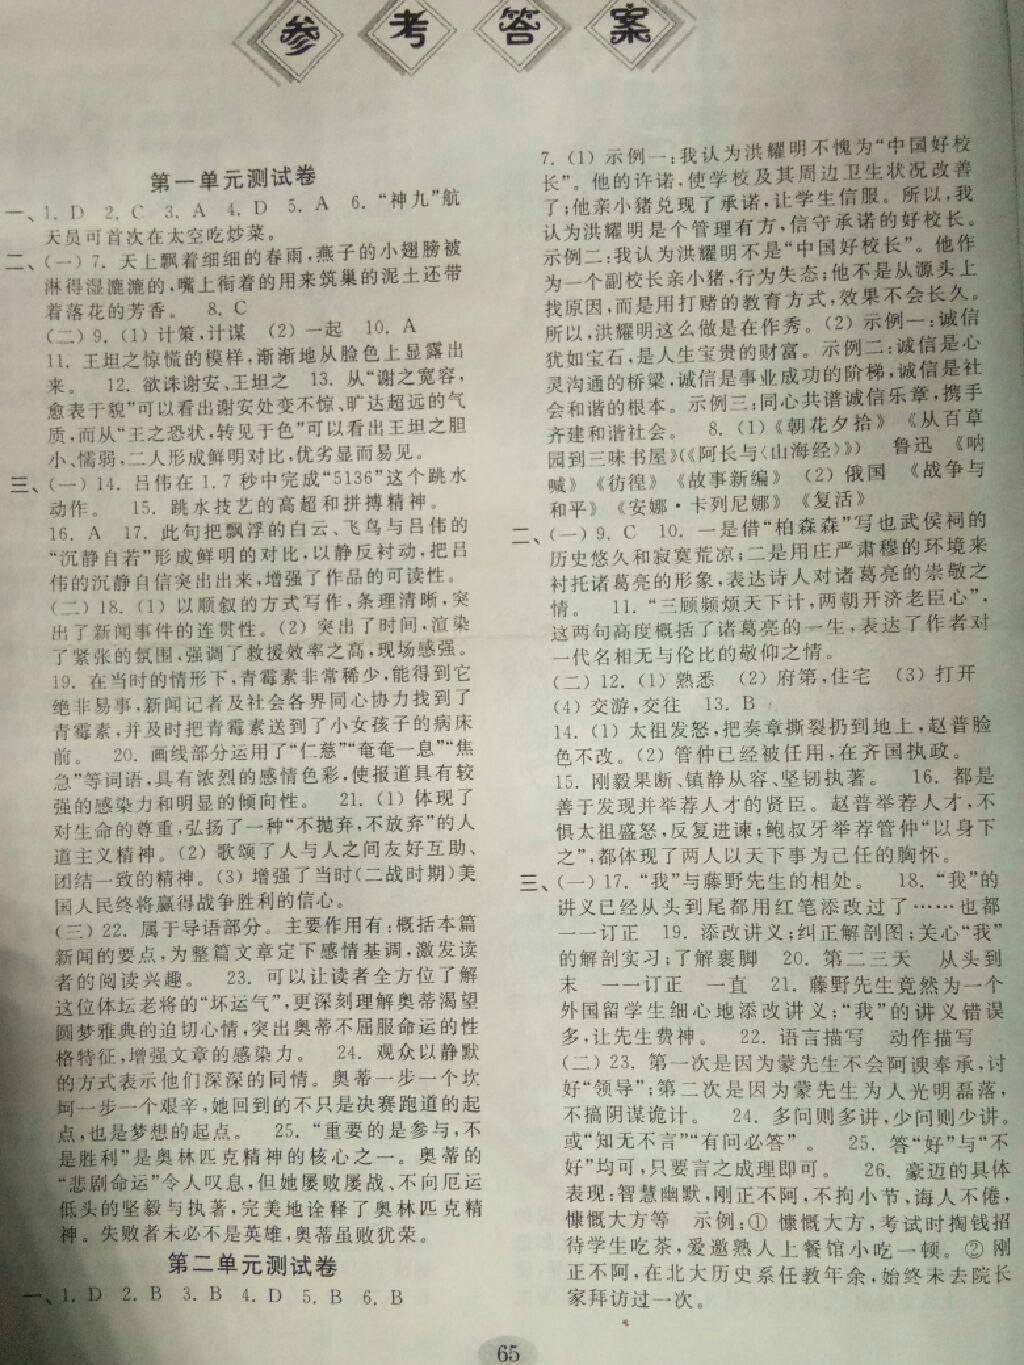 参考答案
第一单元测试卷
一、1. D 2. C 3. A 4. D 5. A 6. “神九”航
天员可首次在太空吃炒菜。
二、(一)7. 天上飘着细细的春雨,燕子的小翅膀被
淋得湿漉漉的,嘴上衔着的用来筑巢的泥土还带
着落花的芳香。 8. C
(二)9. (1) 计策,计谋 (2) 一起 10. A
11. 王坦之惊慌的模样,渐渐地从脸色上显露出
来。 12. 欲诛谢安、王坦之 13. 从“谢之宽容,
愈表于貌”可以看出谢安处变不惊、旷达超远的气
质,而从“王之恐状,转见于色”可以看出王坦之胆
小、懦弱,二人形成鲜明对比,优劣显而易见。
三、(一)14. 吕伟在1.7秒中完成“5136”这个跳水
动作。 15. 跳水技艺的高超和拼搏精神。
16. A 17. 此句把飘浮的白云、飞鸟与吕伟的
“沉静自若”形成鲜明的对比,以静反衬动,把吕
伟的沉静自信突出出来,增强了作品的可读性。
(二)18. (1) 以顺叙的方式写作,条理清晰,突
出了新闻事件的连贯性。(2) 突出了时间,渲染
了紧张的氛围,强调了救援效率之高,现场感强。
19. 在当时的情形下,青霉素非常稀少,能得到它
绝非易事,新闻记者及社会各界同心协力找到了
青霉素,并及时把青霉素送到了小女孩子的病床
前。 20. 画线部分运用了“仁慈”“奄奄一息”“焦
急”等词语,具有浓烈的感情色彩,使报道具有较
强的感染力和明显的倾向性。 21. (1) 体现了
对生命的尊重,弘扬了一种“不抛弃,不放弃”的人
道主义精神。(2) 歌颂了人与人之间友好互助、
团结一致的精神。(3) 增强了当时(二战时期)美
国人民终将赢得战争胜利的信心。
(三)22. 属于导语部分。主要作用有:概括本篇
新闻的要点,为整篇文章定下感情基调,激发读
者的阅读兴趣。 23. 可以让读者全方位了解
这位体坛老将的“坏运气”,更深刻理解奥蒂渴望
圆梦雅典的迫切心情,突出奥蒂不屈服命运的性
格特征,增强文章的感染力。 24. 观众以静默
的方式表示他们深深的同情。奥蒂一步一个坎
坷一步一个艰辛,她回到的不只是决赛跑道的起
点,也是梦想的起点。 25. “重要的是参与,不
是胜利”是奥林匹克精神的核心之一。奥蒂的
“悲剧命运”令人叹息,但她屡败屡战、不向厄运
低头的坚毅与执著,完美地诠释了奥林匹克精
神。失败者未必不是英雄,奥蒂虽败犹荣。
第二单元测试卷
一、1. D 2. B 3. B 4. D 5. B 6. B
7. (1) 示例一:我认为洪耀明不愧为“中国好校
长”。他的许诺,使学校及其周边卫生状况改善
了;他亲小猪兑现了承诺,让学生信服。所以,我
认为洪耀明是个管理有方,信守承诺的好校长。
示例二:我认为洪耀明不是“中国好校长”。他作
为一个副校长亲小猪,行为失态;他不是从源头上
找原因,而是用打赌的教育方式,效果不会长久。
所以,洪耀明这么做是在作秀。(2) 示例一:诚信
犹如宝石,是人生宝贵的财富。示例二:诚信是心
灵沟通的桥梁,诚信是事业成功的阶梯,诚信是社
会和谐的根本。示例三:同心共谱诚信乐章,携手
齐建和谐社会。 8. (1)《朝花夕拾》《从百草
园到三味书屋》(《阿长与〈山海经〉》) 鲁迅 《呐
喊》《彷徨》《故事新编》 (2) 俄国 《战争与
和平》《安娜·卡列尼娜》《复活》
二、(一)9. C 10. 一是借“柏森森”写也武侯祠的
历史悠久和寂寞荒凉;二是用庄严肃穆的环境来
衬托诸葛亮的形象,表达诗人对诸葛亮的崇敬之
情。 11. “三顾频烦天下计,两朝开济老臣心”,
这两句高度概括了诸葛亮的一生,表达了作者对
一代名相无与伦比的敬仰之情。
(二)12. (1) 熟悉 (2) 府第,住宅 (3) 打开
(4) 交游,交往 13. B
14. (1) 太祖发怒,把奏章撕裂扔到地上,赵普脸
色不改。(2) 管仲已经被任用,在齐国执政。
15. 刚毅果断、镇静从容、坚韧执著。 16. 都是
善于发现并举荐人才的贤臣。赵普举荐人才,不
惧太祖盛怒,反复进谏;鲍叔牙举荐管仲“以身下
之”,都体现了两人以天下事为己任的胸怀。
三、(一)17. “我”与藤野先生的相处。 18. “我”的
讲义已经从头到尾都用红笔添改过了……也都
一一订正 19. 添改讲义;纠正解剖图;关心“我”
的解剖实习;了解裹脚 20. 第二三天 从头到
末 一一订正 一直 21. 藤野先生竟然为一个
外国留学生细心地添改讲义;“我”的讲义错误
多,让先生费神。 22. 语言描写 动作描写
(二)23. 第一次是因为蒙先生不会阿谀奉承,讨
好“领导”;第二次是因为蒙先生为人光明磊落,
不搞阴谋诡计。 24. 多问则多讲,少问则少讲。
或“知无不言”“有问必答”。 25. 答“好”与“不
好”均可,只要言之成理即可。 26. 豪迈的具体
表现:智慧幽默,刚正不阿,不拘小节,诲人不倦,
慷慨大方等 示例:① 慷慨大方,考试时掏钱招
待学生吃茶,爱邀熟人上餐馆小吃一顿。② 刚
正不阿,在北大历史系任教年余,始终未去院长
家拜访过一次。
65